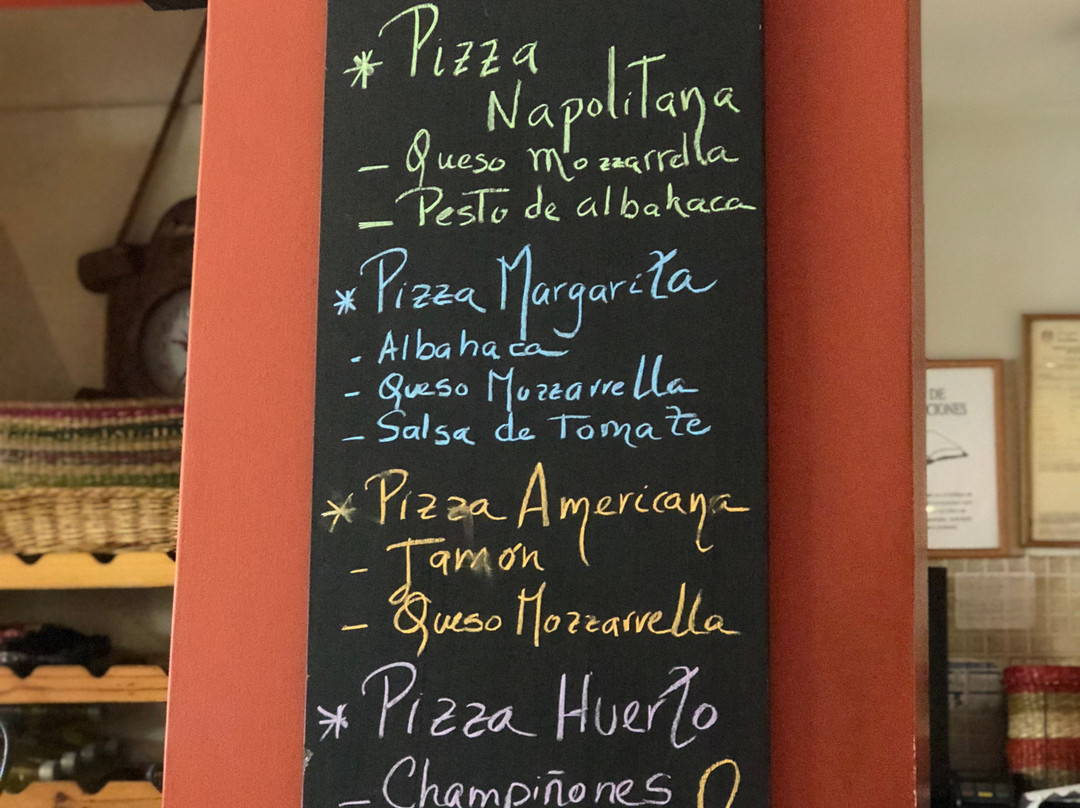 * Pizza
Napolitana
- Queso mozzarrella
- Pesto de albahaca
* Pizza Margarita
- Albahaca
- Queso Mozzarrella
- Salsa de Tomate
* Pizza Americana
- Jamón
- Queso Mozzarrella
* Pizza Huerto
- Champiñones
DE
CIONES